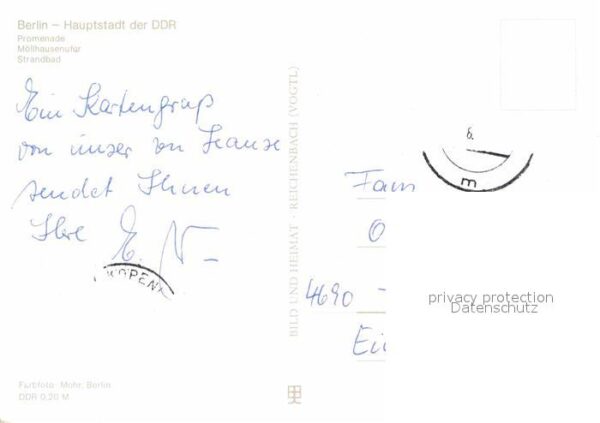 Berlin – Hauptstadt der DDR
Promenade
Möllhausenufer
Strandbad
Ein Kartengruß
von unser zu Hause
sendet Ihnen
Ihre E. N
KÖPEN
BILD UND HEIMAT · REICHENBACH (VOGTL)
m
Fam
O
4690
Ei
privacy protection
Datenschutz
Farbfoto: Mohr, Berlin
DDR 0,20 M